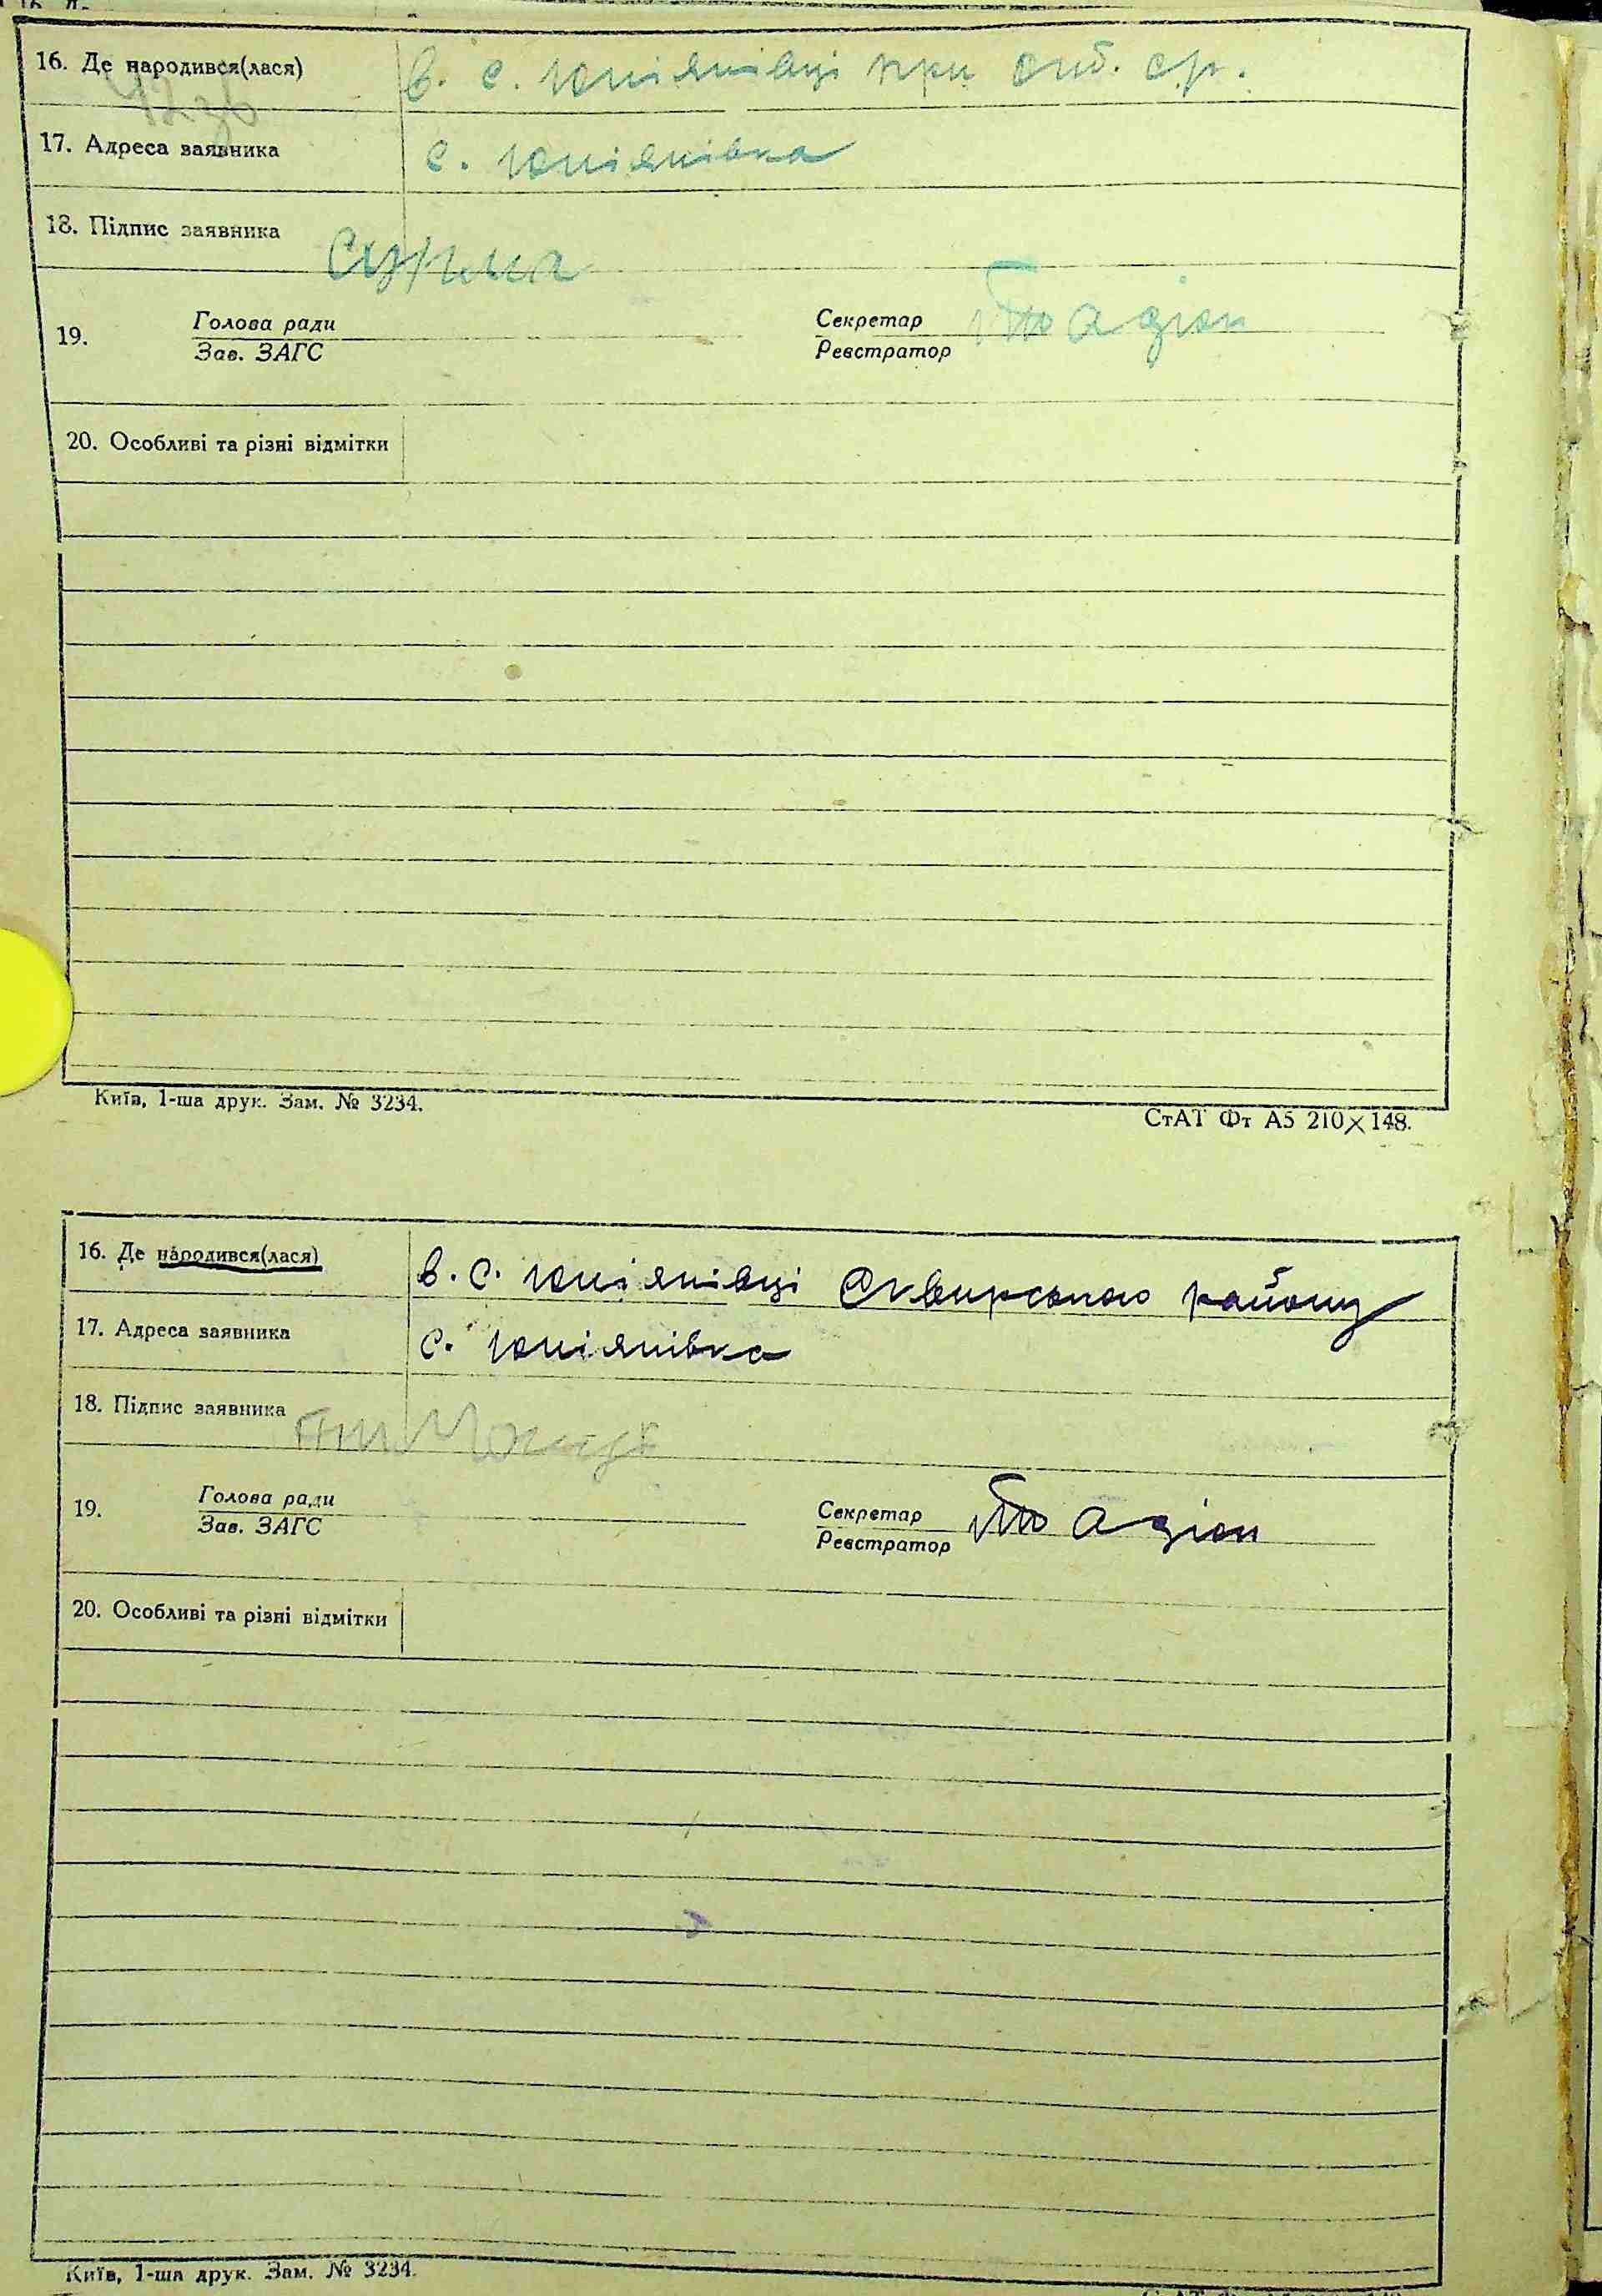 16. Де народився(лася) в. с. Юліянівці при
17. Адреса заявника с. Юліянівка
18. Підпис заявника
19. Голова ради Секретар
Зав. ЗАГС Реєстратор
20. Особливі та різні відмітки
Київ, 1-ша друк. Зам. № 3234.
СтАТ Фт А5 210×148.
16. Де народився(лася) в. с. Юліянівці Сквирського району
17. Адреса заявника с. Юліянівка
18. Підпис заявника
19. Голова ради Секретар
Зав. ЗАГС Реєстратор
20. Особливі та різні відмітки
Київ, 1-ша друк. Зам. № 3234.